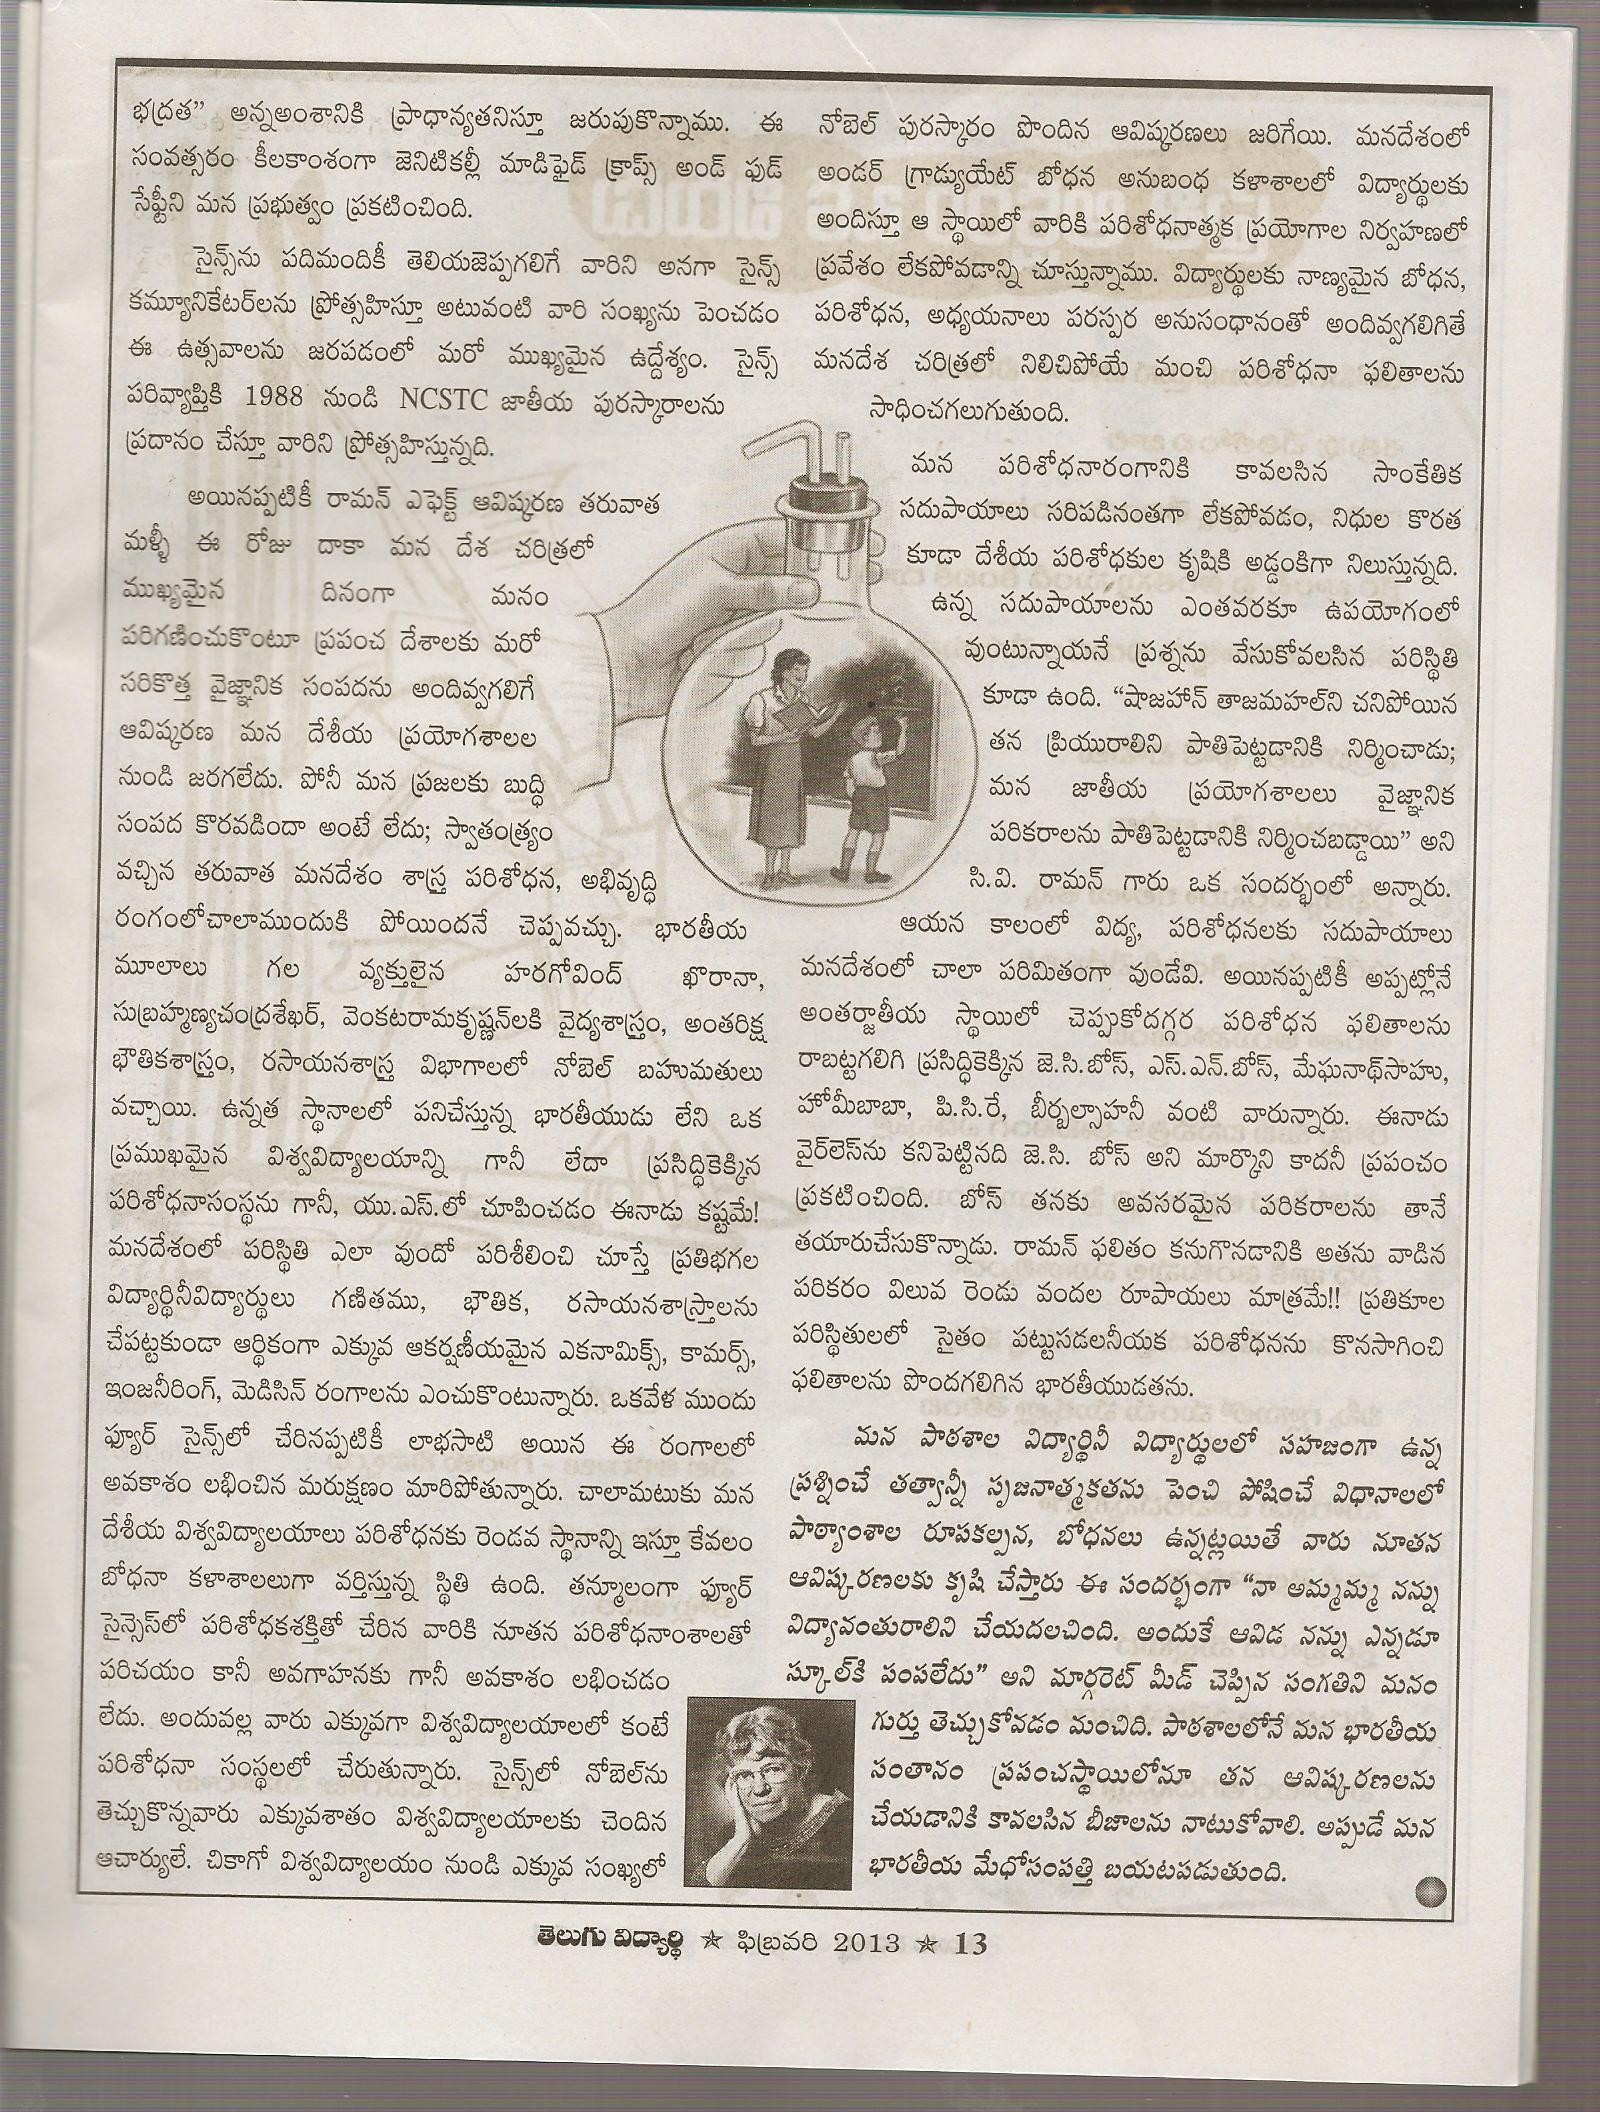 భద్రత” అన్నఅంశానికి ప్రాధాన్యతనిస్తూ జరుపుకొన్నాము. ఈ
సంవత్సరం కీలకాంశంగా జెనిటికల్లీ మాడిఫైడ్ క్రాప్స్ అండ్ ఫుడ్
సేఫ్టీని మన ప్రభుత్వం ప్రకటించింది.
సైన్స్‌ను పదిమందికీ తెలియజెప్పగలిగే వారిని అనగా సైన్స్
కమ్యూనికేటర్‌లను ప్రోత్సహిస్తూ అటువంటి వారి సంఖ్యను పెంచడం
ఈ ఉత్సవాలను జరపడంలో మరో ముఖ్యమైన ఉద్దేశ్యం. సైన్స్
పరివ్యాప్తికి 1988 నుండి NCSTC జాతీయ పురస్కారాలను
ప్రదానం చేస్తూ వారిని ప్రోత్సహిస్తున్నది.
అయినప్పటికీ రామన్ ఎఫెక్ట్ ఆవిష్కరణ తరువాత
మళ్ళీ ఈ రోజు దాకా మన దేశ చరిత్రలో
ముఖ్యమైన దినంగా మనం
పరిగణించుకొంటూ ప్రపంచ దేశాలకు మరో
సరికొత్త వైజ్ఞానిక సంపదను అందివ్వగలిగే
ఆవిష్కరణ మన దేశీయ ప్రయోగశాలల
నుండి జరగలేదు. పోనీ మన ప్రజలకు బుద్ధి
సంపద కొరవడిందా అంటే లేదు; స్వాతంత్ర్యం
వచ్చిన తరువాత మనదేశం శాస్త్ర పరిశోధన, అభివృద్ధి
రంగంలోచాలాముందుకి పోయిందనే చెప్పవచ్చు. భారతీయ
మూలాలు గల వ్యక్తులైన హరగోవింద్ ఖొరానా,
సుబ్రహ్మణ్యచంద్రశేఖర్, వెంకటరామకృష్ణన్‌లకి వైద్యశాస్త్రం, అంతరిక్ష
భౌతికశాస్త్రం, రసాయనశాస్త్ర విభాగాలలో నోబెల్ బహుమతులు
వచ్చాయి. ఉన్నత స్థానాలలో పనిచేస్తున్న భారతీయుడు లేని ఒక
ప్రముఖమైన విశ్వవిద్యాలయాన్ని గానీ లేదా ప్రసిద్ధికెక్కిన
పరిశోధనాసంస్థను గానీ, యు.ఎస్.లో చూపించడం ఈనాడు కష్టమే!
మనదేశంలో పరిస్థితి ఎలా వుందో పరిశీలించి చూస్తే ప్రతిభగల
విద్యార్థినీవిద్యార్థులు గణితము, భౌతిక, రసాయనశాస్త్రాలను
చేపట్టకుండా ఆర్థికంగా ఎక్కువ ఆకర్షణీయమైన ఎకనామిక్స్, కామర్స్,
ఇంజనీరింగ్, మెడిసిన్ రంగాలను ఎంచుకొంటున్నారు. ఒకవేళ ముందు
ఫ్యూర్ సైన్స్‌లో చేరినప్పటికీ లాభసాటి అయిన ఈ రంగాలలో
అవకాశం లభించిన మరుక్షణం మారిపోతున్నారు. చాలామటుకు మన
దేశీయ విశ్వవిద్యాలయాలు పరిశోధనకు రెండవ స్థానాన్ని ఇస్తూ కేవలం
బోధనా కళాశాలలుగా వర్తిస్తున్న స్థితి ఉంది. తన్మూలంగా ఫ్యూర్
సైన్సెస్‌లో పరిశోధకశక్తితో చేరిన వారికి నూతన పరిశోధనాంశాలతో
పరిచయం కానీ అవగాహనకు గానీ అవకాశం లభించడం
లేదు. అందువల్ల వారు ఎక్కువగా విశ్వవిద్యాలయాలలో కంటే
పరిశోధనా సంస్థలలో చేరుతున్నారు. సైన్స్‌లో నోబెల్‌ను
తెచ్చుకొన్నవారు ఎక్కువశాతం విశ్వవిద్యాలయాలకు చెందిన
ఆచార్యులే. చికాగో విశ్వవిద్యాలయం నుండి ఎక్కువ సంఖ్యలో
నోబెల్ పురస్కారం పొందిన ఆవిష్కరణలు జరిగేయి. మనదేశంలో
అండర్ గ్రాడ్యుయేట్ బోధన అనుబంధ కళాశాలలో విద్యార్థులకు
అందిస్తూ ఆ స్థాయిలో వారికి పరిశోధనాత్మక ప్రయోగాల నిర్వహణలో
ప్రవేశం లేకపోవడాన్ని చూస్తున్నాము. విద్యార్థులకు నాణ్యమైన బోధన,
పరిశోధన, అధ్యయనాలు పరస్పర అనుసంధానంతో అందివ్వగలిగితే
మనదేశ చరిత్రలో నిలిచిపోయే మంచి పరిశోధనా ఫలితాలను
సాధించగలుగుతుంది.
మన పరిశోధనారంగానికి కావలసిన సాంకేతిక
సదుపాయాలు సరిపడినంతగా లేకపోవడం, నిధుల కొరత
కూడా దేశీయ పరిశోధకుల కృషికి అడ్డంకిగా నిలుస్తున్నది.
ఉన్న సదుపాయాలను ఎంతవరకూ ఉపయోగంలో
వుంటున్నాయనే ప్రశ్నను వేసుకోవలసిన పరిస్థితి
కూడా ఉంది. “షాజహాన్ తాజమహల్‌ని చనిపోయిన
తన ప్రియురాలిని పాతిపెట్టడానికి నిర్మించాడు;
మన జాతీయ ప్రయోగశాలలు వైజ్ఞానిక
పరికరాలను పాతిపెట్టడానికి నిర్మించబడ్డాయి” అని
సి.వి. రామన్ గారు ఒక సందర్భంలో అన్నారు.
ఆయన కాలంలో విద్య, పరిశోధనలకు సదుపాయాలు
మనదేశంలో చాలా పరిమితంగా వుండేవి. అయినప్పటికీ అప్పట్లోనే
అంతర్జాతీయ స్థాయిలో చెప్పుకోదగ్గర పరిశోధన ఫలితాలను
రాబట్టగలిగి ప్రసిద్ధికెక్కిన జె.సి.బోస్, ఎస్.ఎన్.బోస్, మేఘనాథ్‌సాహు,
హోమీబాబా, పి.సి.రే, బీర్బల్సాహనీ వంటి వారున్నారు. ఈనాడు
వైర్‌లెస్‌ను కనిపెట్టినది జె.సి. బోస్ అని మార్కొని కాదనీ ప్రపంచం
ప్రకటించింది. బోస్ తనకు అవసరమైన పరికరాలను తానే
తయారుచేసుకొన్నాడు. రామన్ ఫలితం కనుగొనడానికి అతను వాడిన
పరికరం విలువ రెండు వందల రూపాయలు మాత్రమే!! ప్రతికూల
పరిస్థితులలో సైతం పట్టుసడలనీయక పరిశోధనను కొనసాగించి
ఫలితాలను పొందగలిగిన భారతీయుడతను.
మన పాఠశాల విద్యార్థినీ విద్యార్థులలో సహజంగా ఉన్న
ప్రశ్నించే తత్వాన్నీ సృజనాత్మకతను పెంచి పోషించే విధానాలలో
పాఠ్యాంశాల రూపకల్పన, బోధనలు ఉన్నట్లయితే వారు నూతన
ఆవిష్కరణలకు కృషి చేస్తారు ఈ సందర్భంగా “నా అమ్మమ్మ నన్ను
విద్యావంతురాలిని చేయదలచింది. అందుకే ఆవిడ నన్ను ఎన్నడూ
స్కూల్‌కి పంపలేదు” అని మార్గరెట్ మీడ్ చెప్పిన సంగతిని మనం
గుర్తు తెచ్చుకోవడం మంచిది. పాఠశాలలోనే మన భారతీయ
సంతానం ప్రపంచస్థాయిలోనూ తన ఆవిష్కరణలను
చేయడానికి కావలసిన బీజాలను నాటుకోవాలి. అప్పుడే మన
భారతీయ మేధోసంపత్తి బయటపడుతుంది.
తెలుగు విద్యార్థి ★ ఫిబ్రవరి 2013 ★ 13